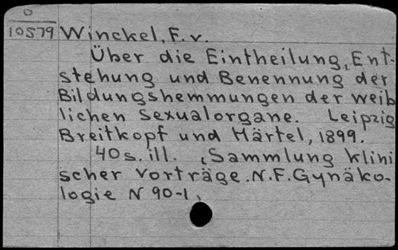 O
10579 Winckel, F. v.
Über die Eintheilung, Ent-
stehung und Benennung der
Bildungshemmungen der weib
lichen Sexualorgane. Leipzig
Breitkopf und Härtel, 1899.
40 s. ill. (Sammlung klini
scher Vorträge. N.F. Gynäko-
logie N 90-1,